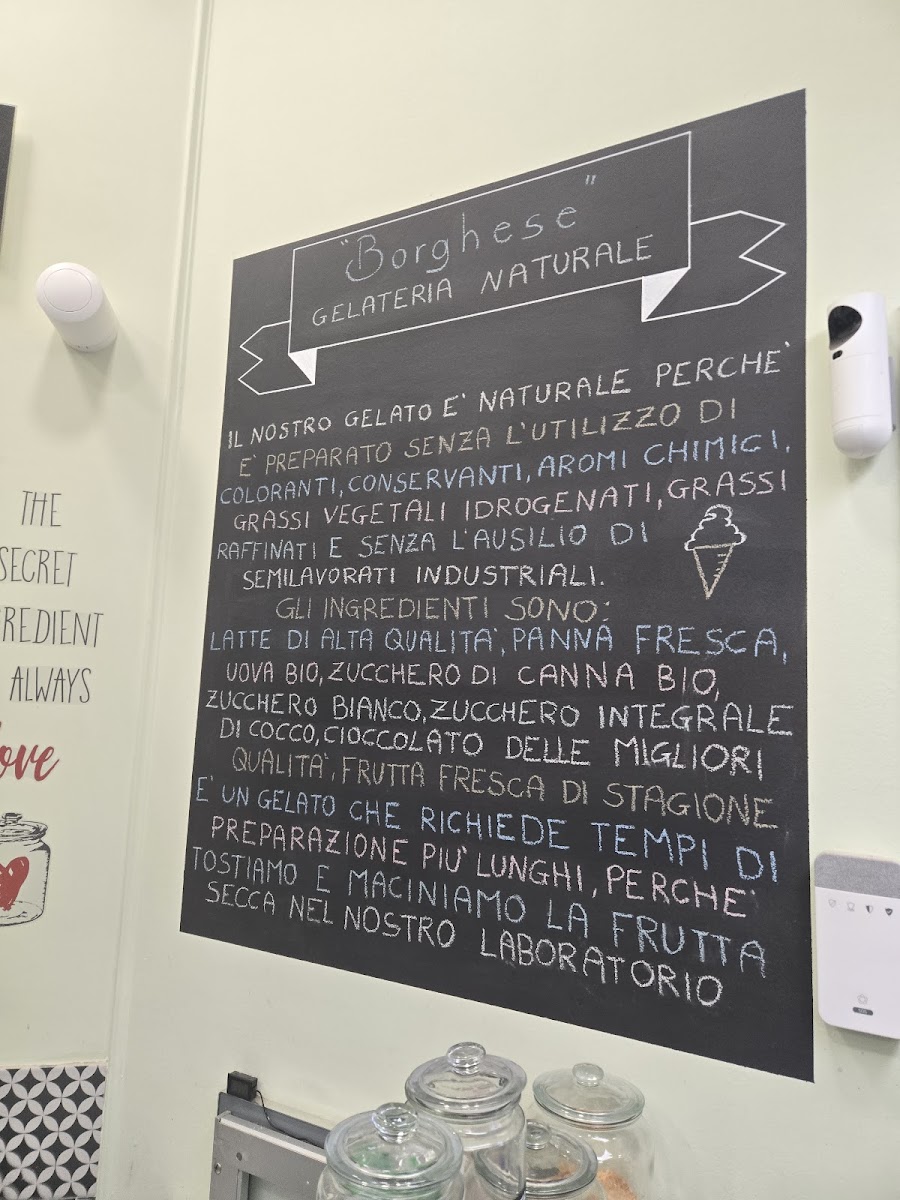 "Borghese"
GELATERIA NATURALE
IL NOSTRO GELATO E' NATURALE PERCHE'
E' PREPARATO SENZA L'UTILIZZO DI
COLORANTI, CONSERVANTI, AROMI CHIMICI,
GRASSI VEGETALI IDROGENATI, GRASSI
RAFFINATI E SENZA L'AUSILIO DI
SEMILAVORATI INDUSTRIALI.
GLI INGREDIENTI SONO:
LATTE DI ALTA QUALITA', PANNA FRESCA,
UOVA BIO, ZUCCHERO DI CANNA BIO,
ZUCCHERO BIANCO, ZUCCHERO INTEGRALE
DI COCCO, CIOCCOLATO DELLE MIGLIORI
QUALITA', FRUTTA FRESCA DI STAGIONE
E' UN GELATO CHE RICHIEDE TEMPI DI
PREPARAZIONE PIU' LUNGHI, PERCHE'
TOSTIAMO E MACINIAMO LA FRUTTA
SECCA NEL NOSTRO LABORATORIO
THE
SECRET
REDIENT
ALWAYS
love